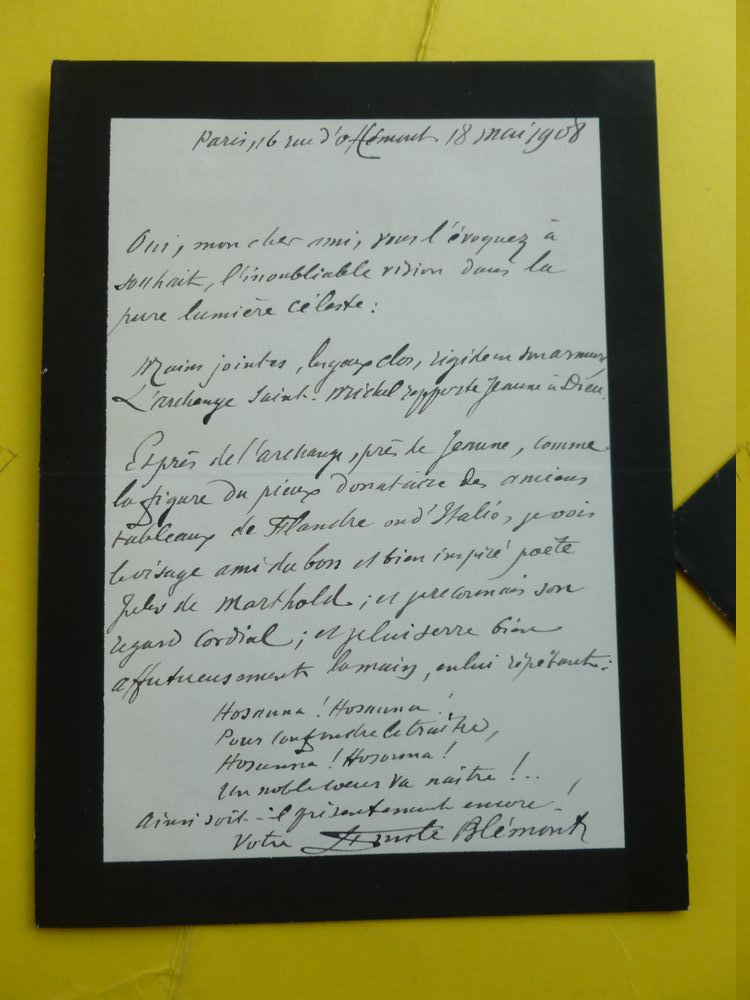 Paris, 16 rue d'Offémont 18 mai 1908
Oui, mon cher ami, vous l'évoquez à
souhait, l'inoubliable vision dans la
pure lumière céleste :
Mains jointes, les yeux clos, rigide en son armure
L'archange Saint-Michel rapporte Jeanne à Dieu.
Et près de l'archange, près de Jeanne, comme
la figure du pieux donataire des anciens
tableaux de Flandre ou d'Italie, je vois
le visage ami du bon et bien inspiré poète
Jules de Marthold ; et je reconnais son
regard cordial ; et je lui serre bien
affectueusement la main, en lui répétant :
Hosanna ! Hosanna !
Pour confondre le traître,
Hosanna ! Hosanna !
Un noble coeur va naître !..
Ainsi soit-il présentement encore !
Votre Emile Blémont